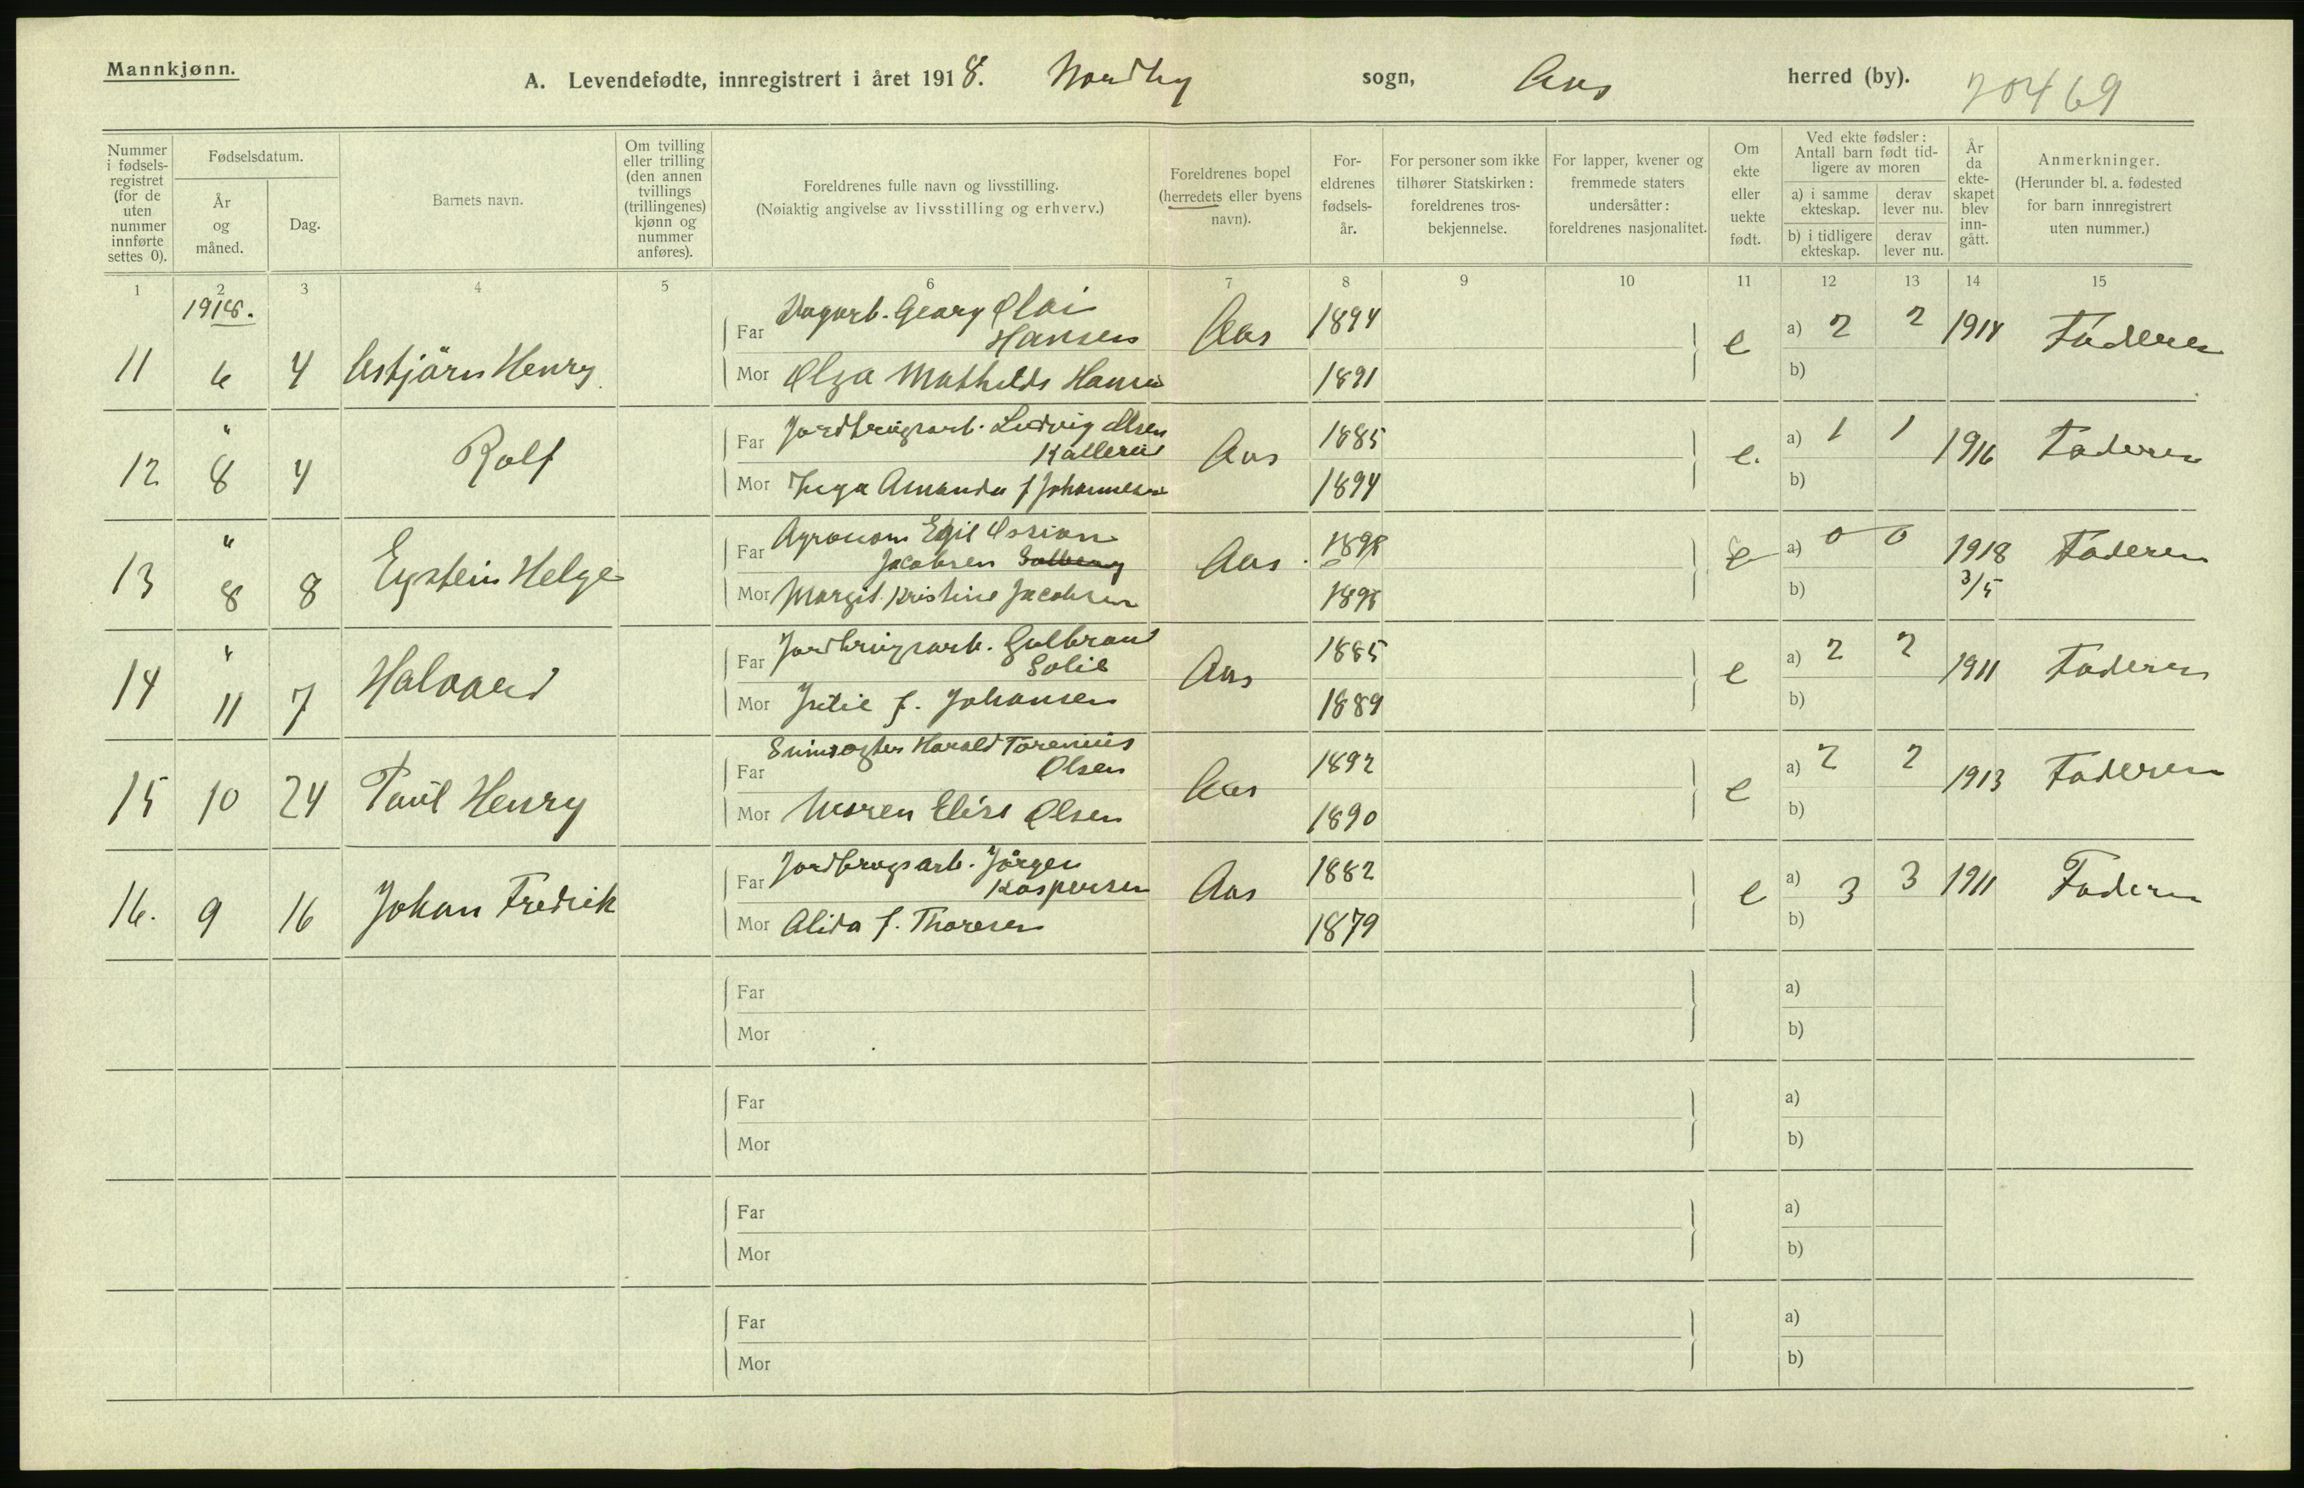 Mannkjønn.
A. Levendefødte, innregistrert i året 1918. Nordby sogn, Aas herred (by). 20469
Nummer i fødsels- registret (for de uten nummer innførte settes 0).
Fødselsdatum.
År og måned.
Dag.
Barnets navn.
Om tvilling eller trilling (den annen tvillings (trillingenes) kjønn og nummer anføres).
Foreldrenes fulle navn og livsstilling.
(Nøiaktig angivelse av livsstilling og erhverv.)
Foreldrenes bopel (herredets eller byens navn).
For- eldrenes fødsels- år.
For personer som ikke tilhører Statskirken: foreldrenes tros- bekjennelse.
For lapper, kvener og fremmede staters undersåtter: foreldrenes nasjonalitet.
Om ekte eller uekte født.
Ved ekte fødsler: Antall barn født tid- ligere av moren
a) i samme ekteskap. derav lever nu.
b) i tidligere ekteskap. derav lever nu.
År da ekte- skapet blev inn- gått.
Anmerkninger.
(Herunder bl. a. fødested for barn innregistrert uten nummer.)
1 2 3 4 5 6 7 8 9 10 11 12 13 14 15
1918.
11 6 4 Asbjörn Henry Far Dagarb. Georg Olai Hansen Aas 1894 e a) 2 2 1914 Faderen
Mor Olga Mathilde Hansen 1891 b)
12 " 8 4 Rolf Far Jordbrugsarb. Ludvig Olsen Kallerud Aas 1885 e. a) 1 1 1916 Faderen
Mor Inga Amanda f Johannesen 1894 b)
13 " 8 8 Eystein Helge Far Agronom Egil Ossian Jacobsen Solberg Aas 1898 e a) 0 0 1918 3/5 Faderen
Mor Margit Kristine Jacobsen 1898 b)
14 " 11 7 Halvard Far Jordbrugsarb. Gulbrand Solie Aas 1885 e a) 2 2 1911 Faderen
Mor Julie f. Johansen 1889 b)
15 10 24 Paul Henry Far Harald Torenius Olsen Aas 1892 e a) 2 2 1913 Faderen
Mor Maren Elise Olsen 1890 b)
16. 9 16 Johan Fredrik Far Jordbrugsarb. Jörgen Kaspersen Aas 1882 e a) 3 3 1911 Faderen
Mor Alida f. Thoresen 1879 b)
Far a)
Mor b)
Far a)
Mor b)
Far a)
Mor b)
Far a)
Mor b)